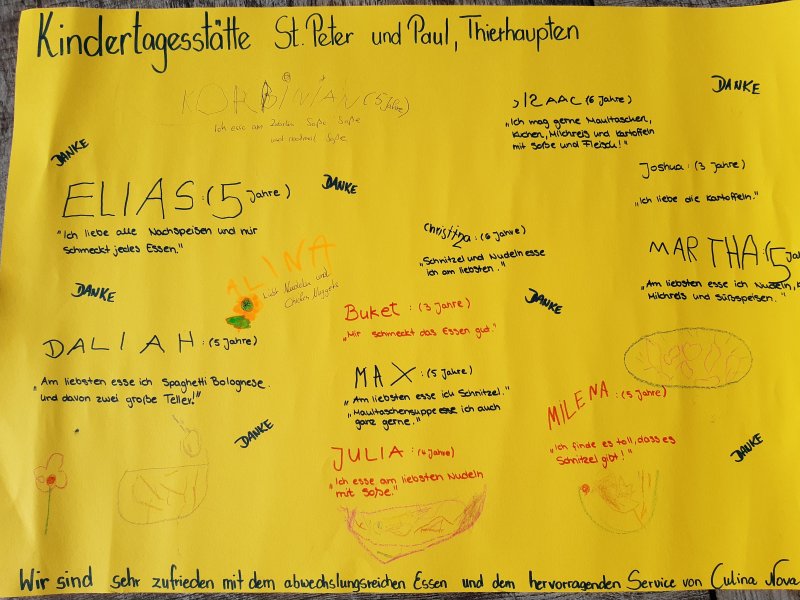 Kindertagesstätte St. Peter und Paul, Thierhaupten
DANKE
KORBINIAN (5 Jahre)
Ich esse am Soße Soße
und nochmal Soße
IZAAC (6 Jahre)
"Ich mag gerne Maultaschen,
Kuchen, Milchreis und Kartoffeln
mit Soße und Fleisch!"
DANKE
Joshua: (3 Jahre)
"Ich liebe die Kartoffeln."
DANKE
ELIAS: (5 Jahre)
"Ich liebe alle Nachspeisen und mir
schmeckt jedes Essen."
Christina: (6 Jahre)
"Schnitzel und Nudeln esse
ich am liebsten."
MARTHA (5 Jah
"Am liebsten esse ich Nudeln, K
Milchreis und Süßspeisen."
ALINA
liebt Nudeln und
Chicken Nuggets
DANKE
DANKE
Buket: (3 Jahre)
"Mir schmeckt das Essen gut."
DALIAH: (5 Jahre)
"Am liebsten esse ich Spaghetti Bolognese
und davon zwei große Teller!"
MAX: (5 Jahre)
"Am liebsten esse ich Schnitzel."
"Maultaschensuppe esse ich auch
ganz gerne."
MILENA: (5 Jahre)
"Ich finde es toll, dass es
Schnitzel gibt!"
DANKE
DANKE
JULIA: (4 Jahre)
"Ich esse am liebsten Nudeln
mit Soße."
Wir sind sehr zufrieden mit dem abwechslungsreichen Essen und dem hervorragenden Service von Culina Nova